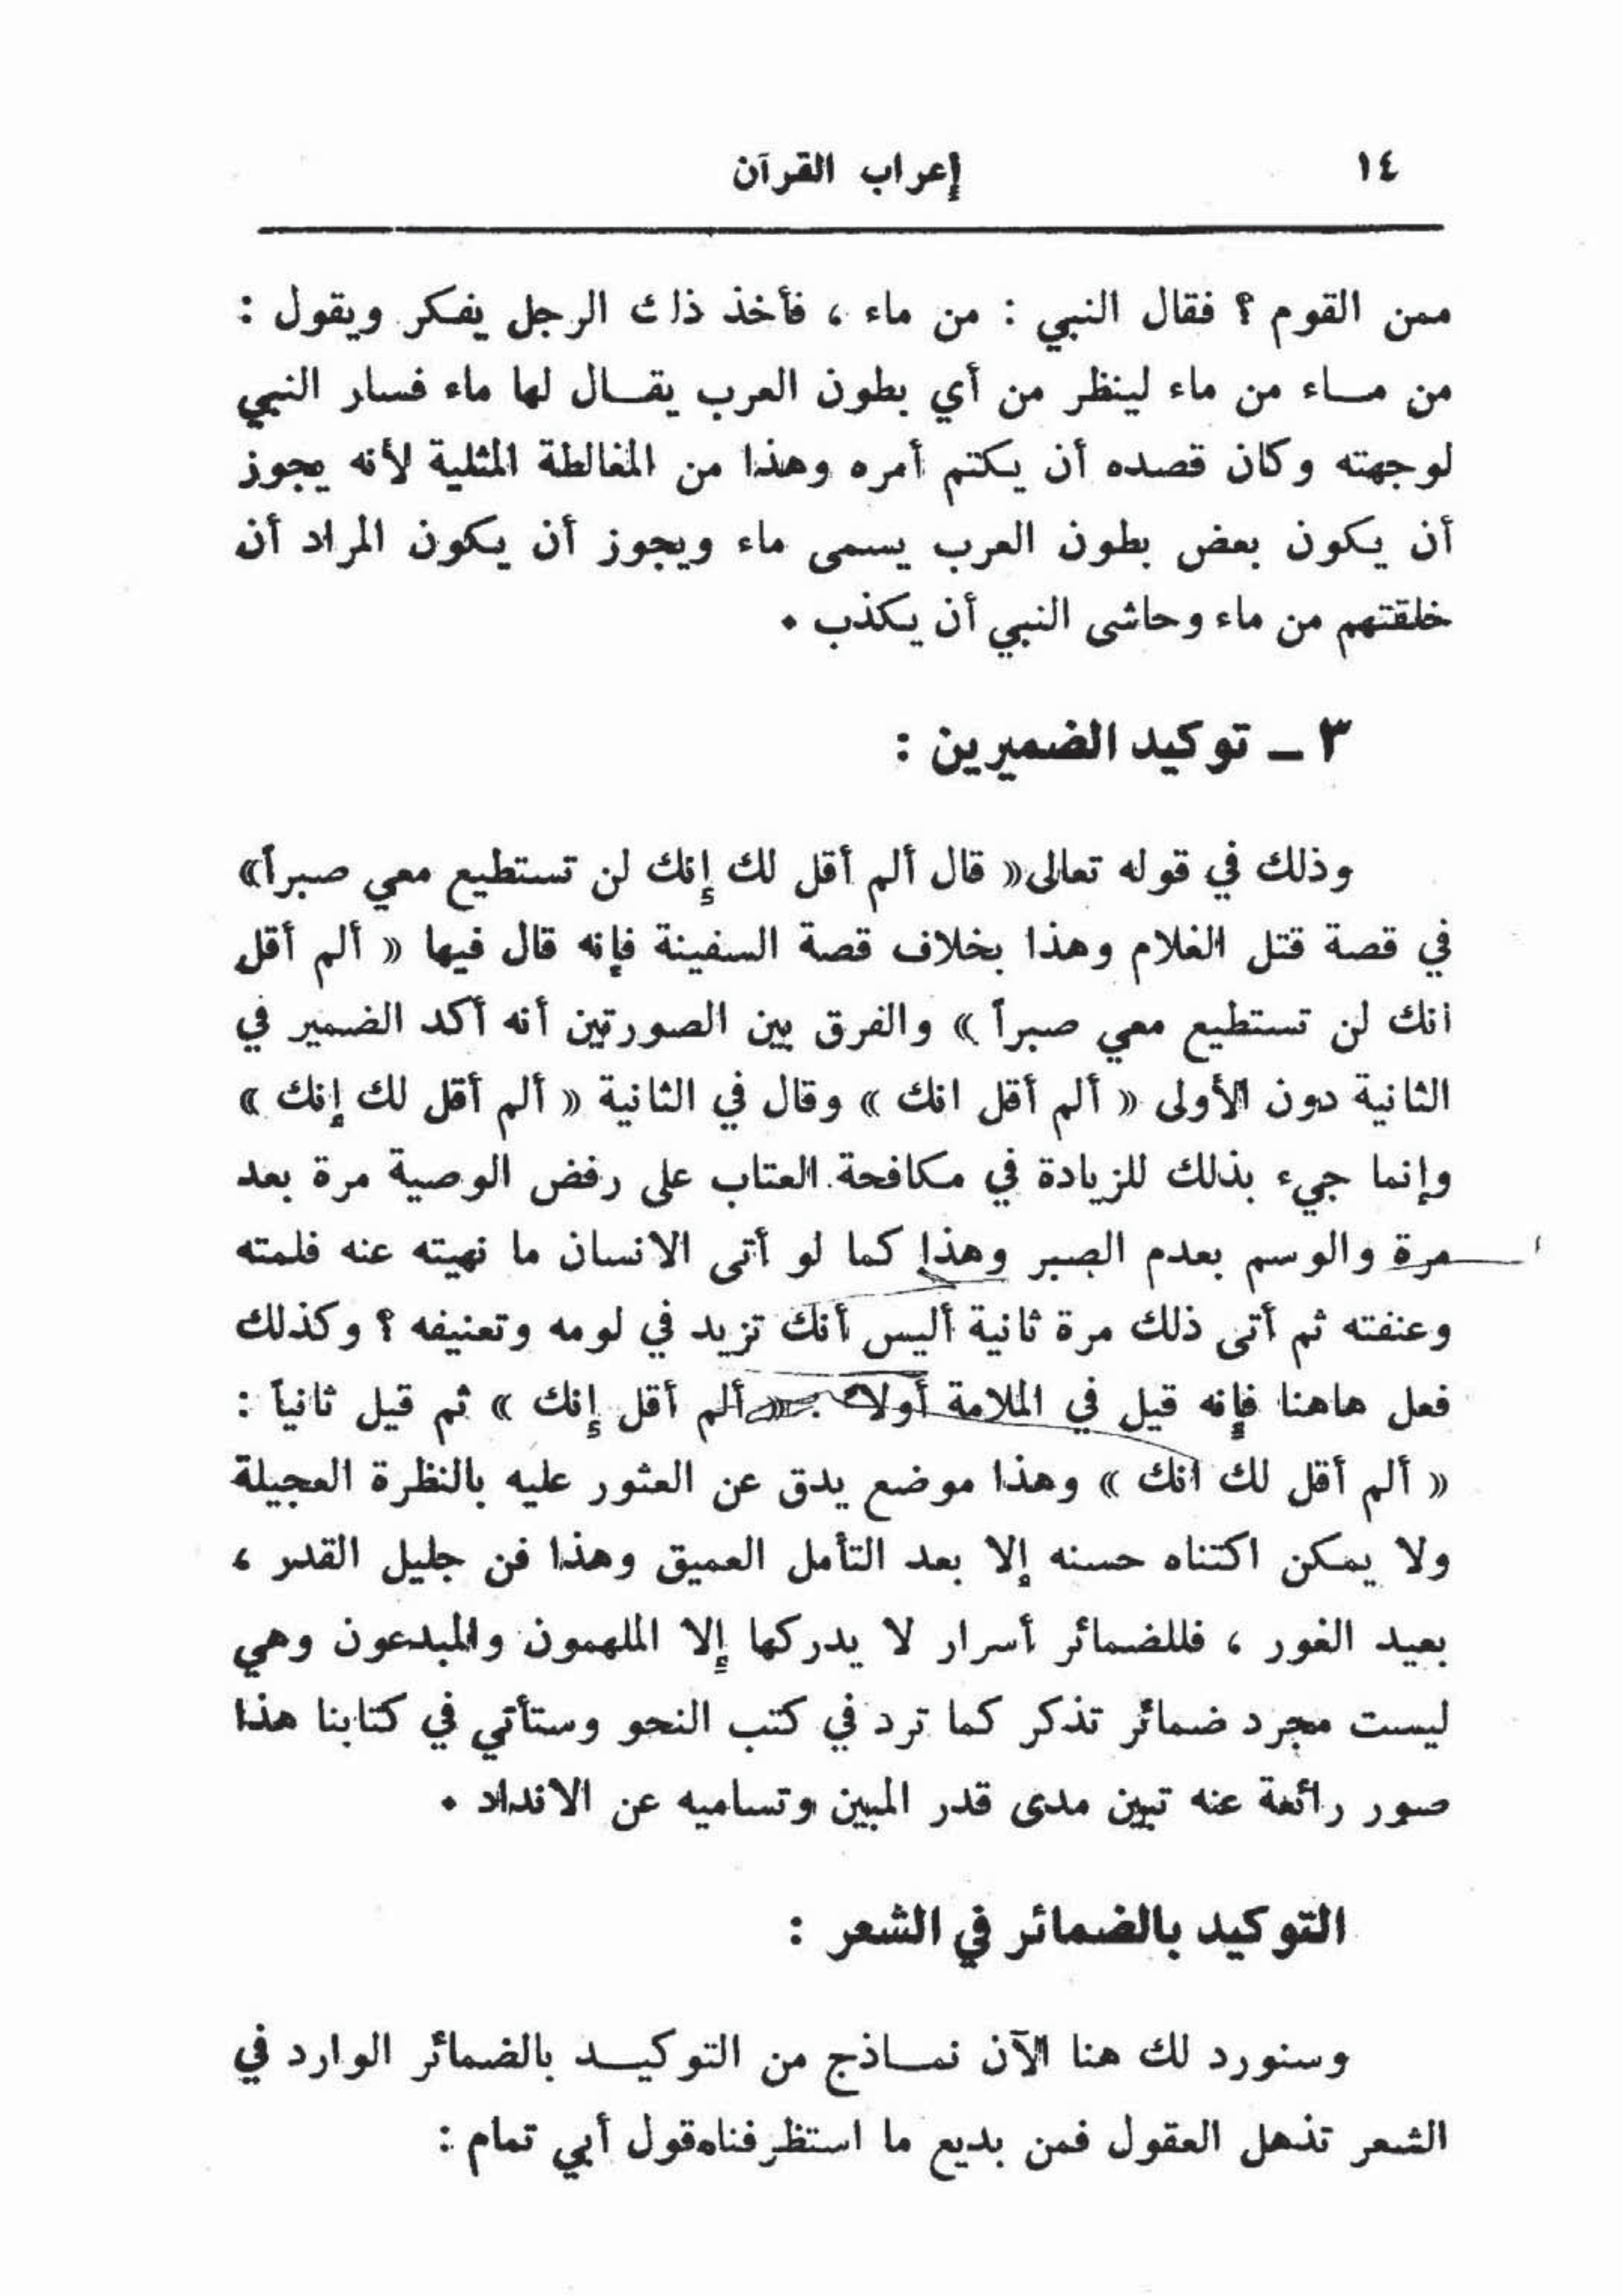 ١٤
إعراب القرآن
ممن القوم ؟ فقال النبي : من ماء ، فأخذ ذلك الرجل يفكر ويقول :
من مـاء من ماء لينظر من أي بطون العرب يقـال لها ماء فسار النبي
لوجهته وكان قصده أن يكتم أمره وهذا من المغالطة المثلية لأنه يجوز
أن يكون بعض بطون العرب يسمى ماء ويجوز أن يكون المراد أن
خلقتهم من ماء وحاشى النبي أن يكذب .
٣ ـ توكيد الضميرين :
وذلك في قوله تعالى « قال ألم أقل لك إنك لن تستطيع معي صبراً»
في قصة قتل الغلام وهذا بخلاف قصة السفينة فإنه قال فيها « ألم أقل
انك لن تستطيع معي صبراً » والفرق بين الصورتين أنه أكد الضمير في
الثانية دون الأولى « ألم أقل انك » وقال في الثانية « ألم أقل لك إنك »
وإنما جيء بذلك للزيادة في مكافحة العتاب على رفض الوصية مرة بعد
مرة والوسم بعدم الصبر وهذا كما لو أتى الانسان ما نهيته عنه فلمته
وعنفته ثم أتى ذلك مرة ثانية أليس أنك تزيد في لومه وتعنيفه ؟ وكذلك
فعل هاهنا فإنه قيل في الملامة أولا : « ألم أقل إنك » ثم قيل ثانياً :
« ألم أقل لك انك » وهذا موضع يدق عن العثور عليه بالنظرة العجيلة
ولا يمكن اكتناه حسنه إلا بعد التأمل العميق وهذا فن جليل القدر ،
بعيد الغور ، فللضمائر أسرار لا يدركها إلا الملهمون والمبدعون وهي
ليست مجرد ضمائر تذكر كما ترد في كتب النحو وستأتي في كتابنا هذا
صور رائعة عنه تبين مدى قدر المبين وتساميه عن الانداد .
التوكيد بالضمائر في الشعر :
وسنورد لك هنا الآن نمـاذج من التوكيـد بالضمائر الوارد في
الشعر تذهل العقول فمن بديع ما استظرفناه قول أبي تمام :